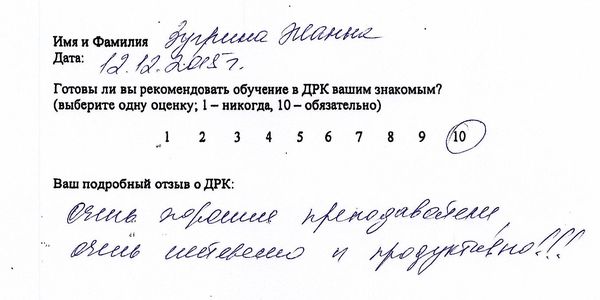 Имя и Фамилия Зугрина Жанна
Дата: 12.12.2015 г.
Готовы ли вы рекомендовать обучение в ДРК вашим знакомым?
(выберите одну оценку; 1 – никогда, 10 – обязательно)
1 2 3 4 5 6 7 8 9 10
Ваш подробный отзыв о ДРК:
Очень хорошие преподаватели,
очень интересно и продуктивно!!!